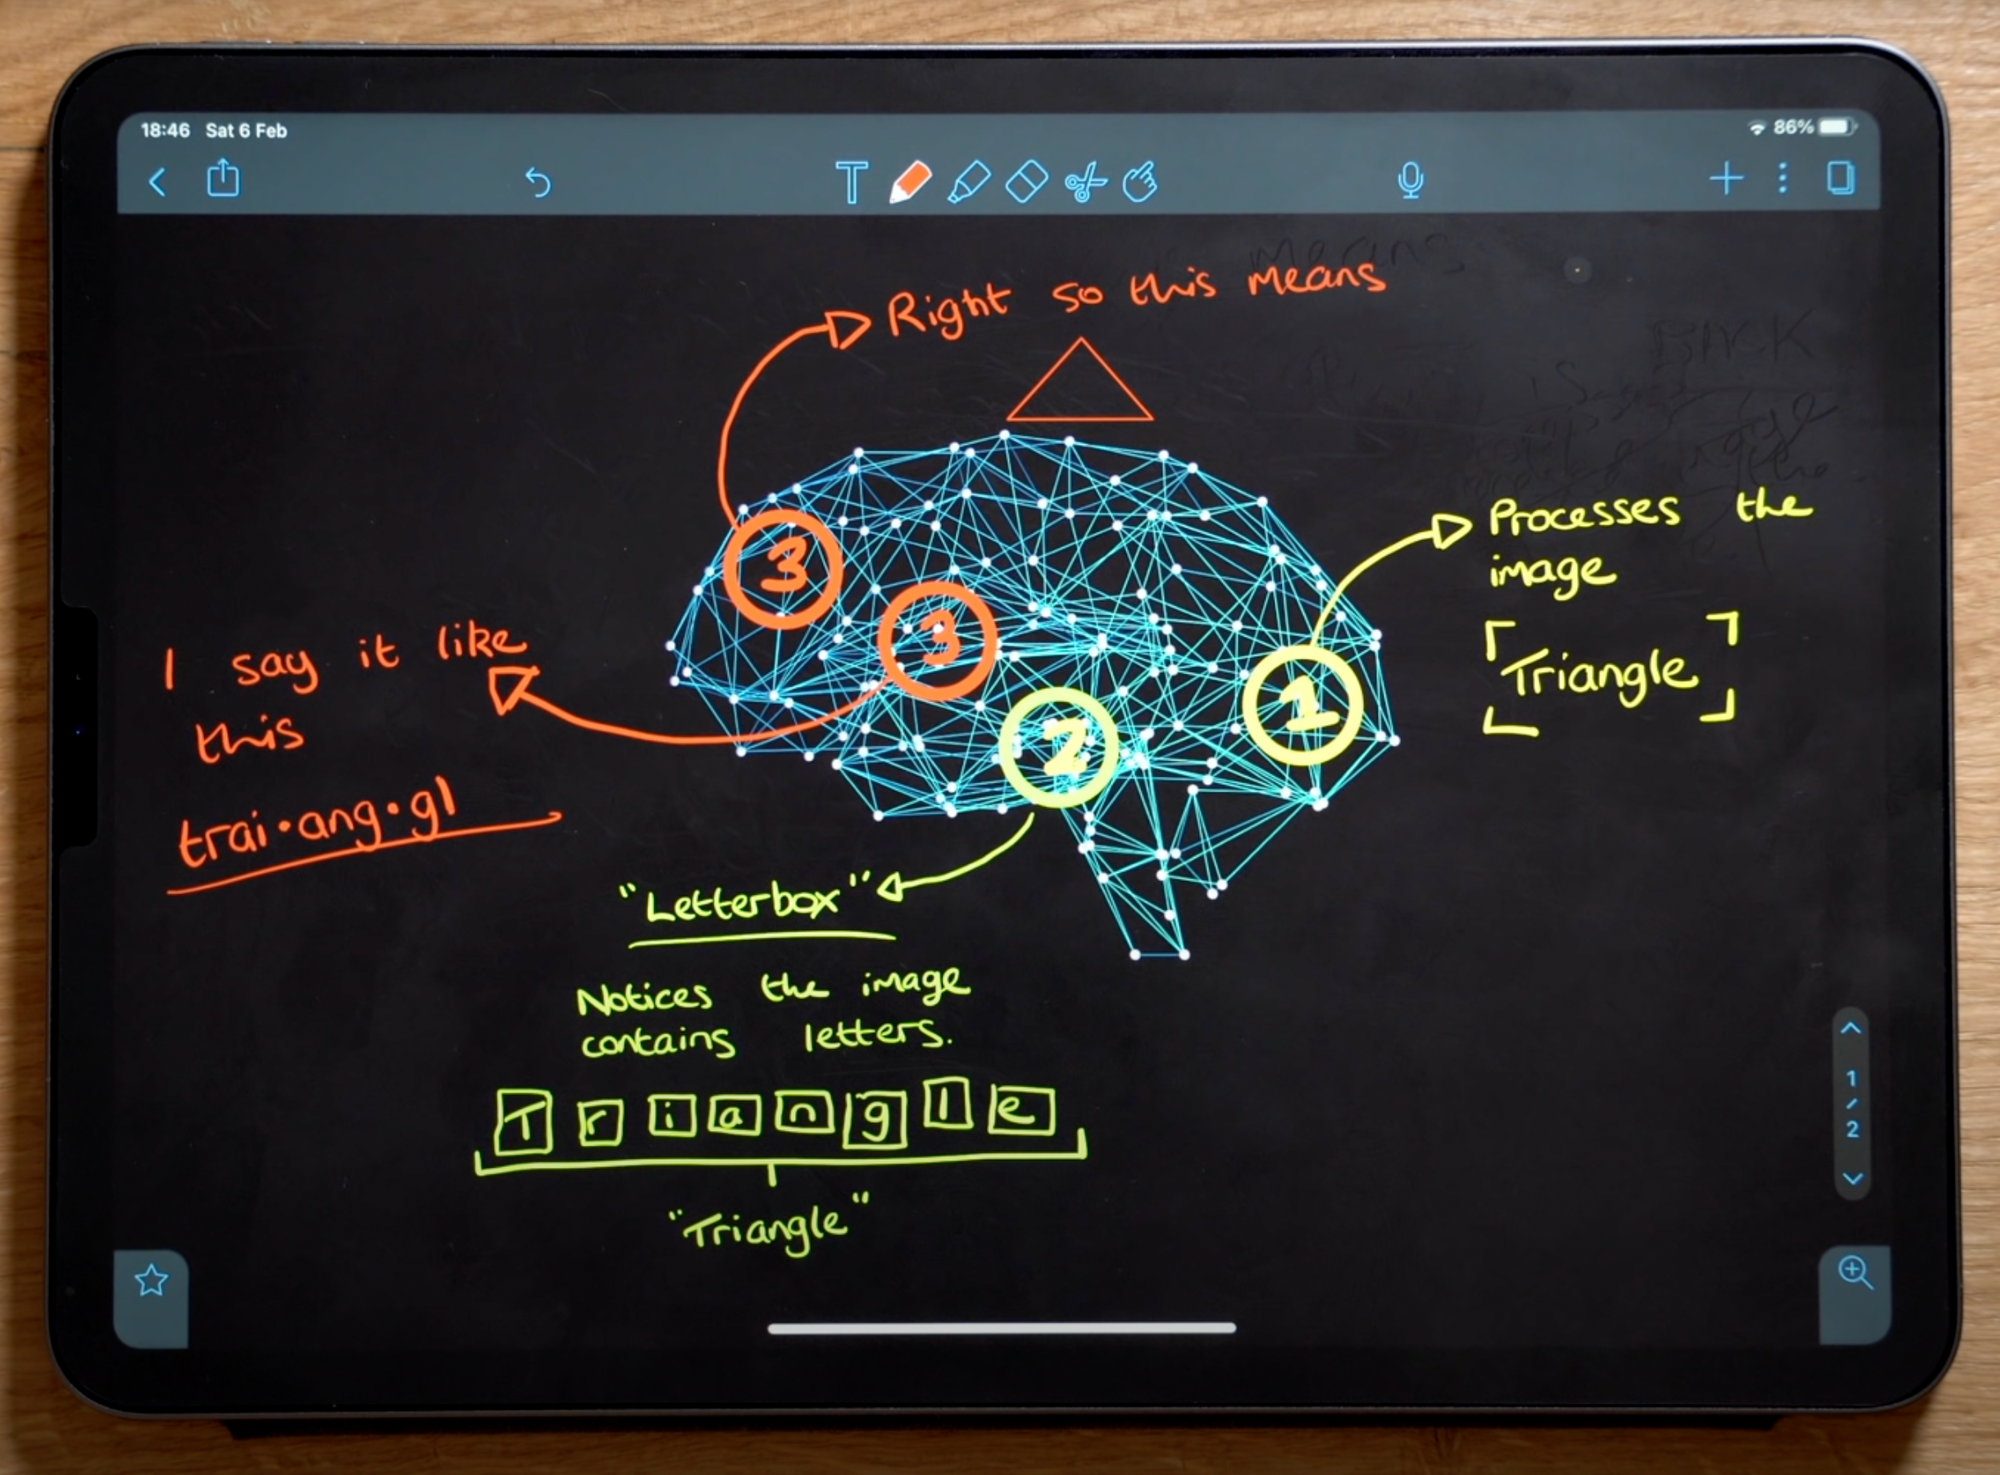 18:46 Sat 6 Feb
86%
T
Right so this means
Processes the
image
Triangle
3
3
1
2
I say it like
this
trai·ang·gl
"Letterbox"
Notices the image
contains letters.
T r i a n g l e
"Triangle"
1
/
2